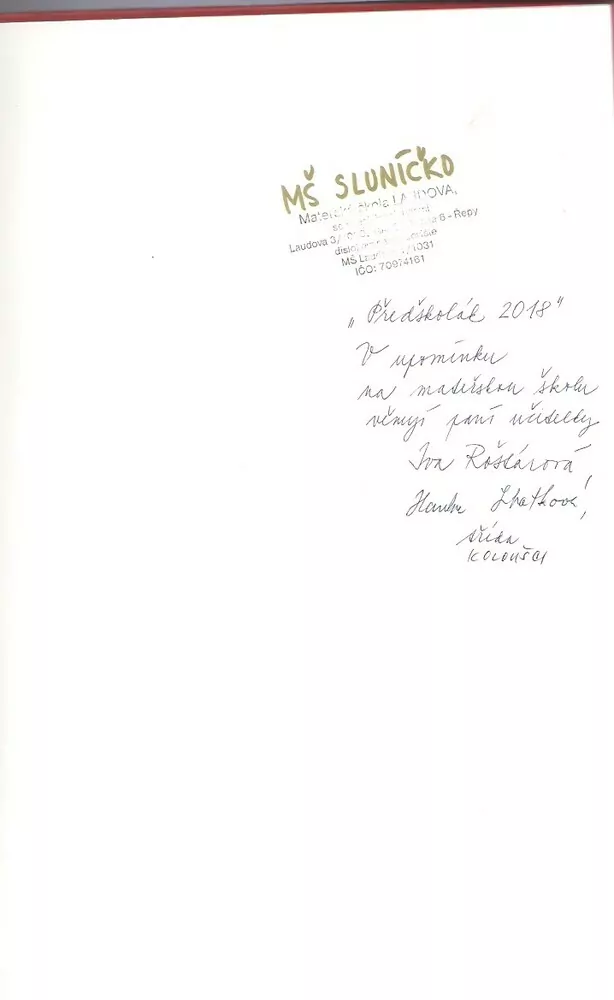 MŠ SLUNÍČKO
Mateřská škola LAUDOVA,
Laudova 3/ 6 - Řepy
MŠ 1031
IČO: 70974161
„Předškolák 2018"
V upomínku
na mateřskou školu
věnují paní učitelky
Iva Roštárová
Lhotková,
třída